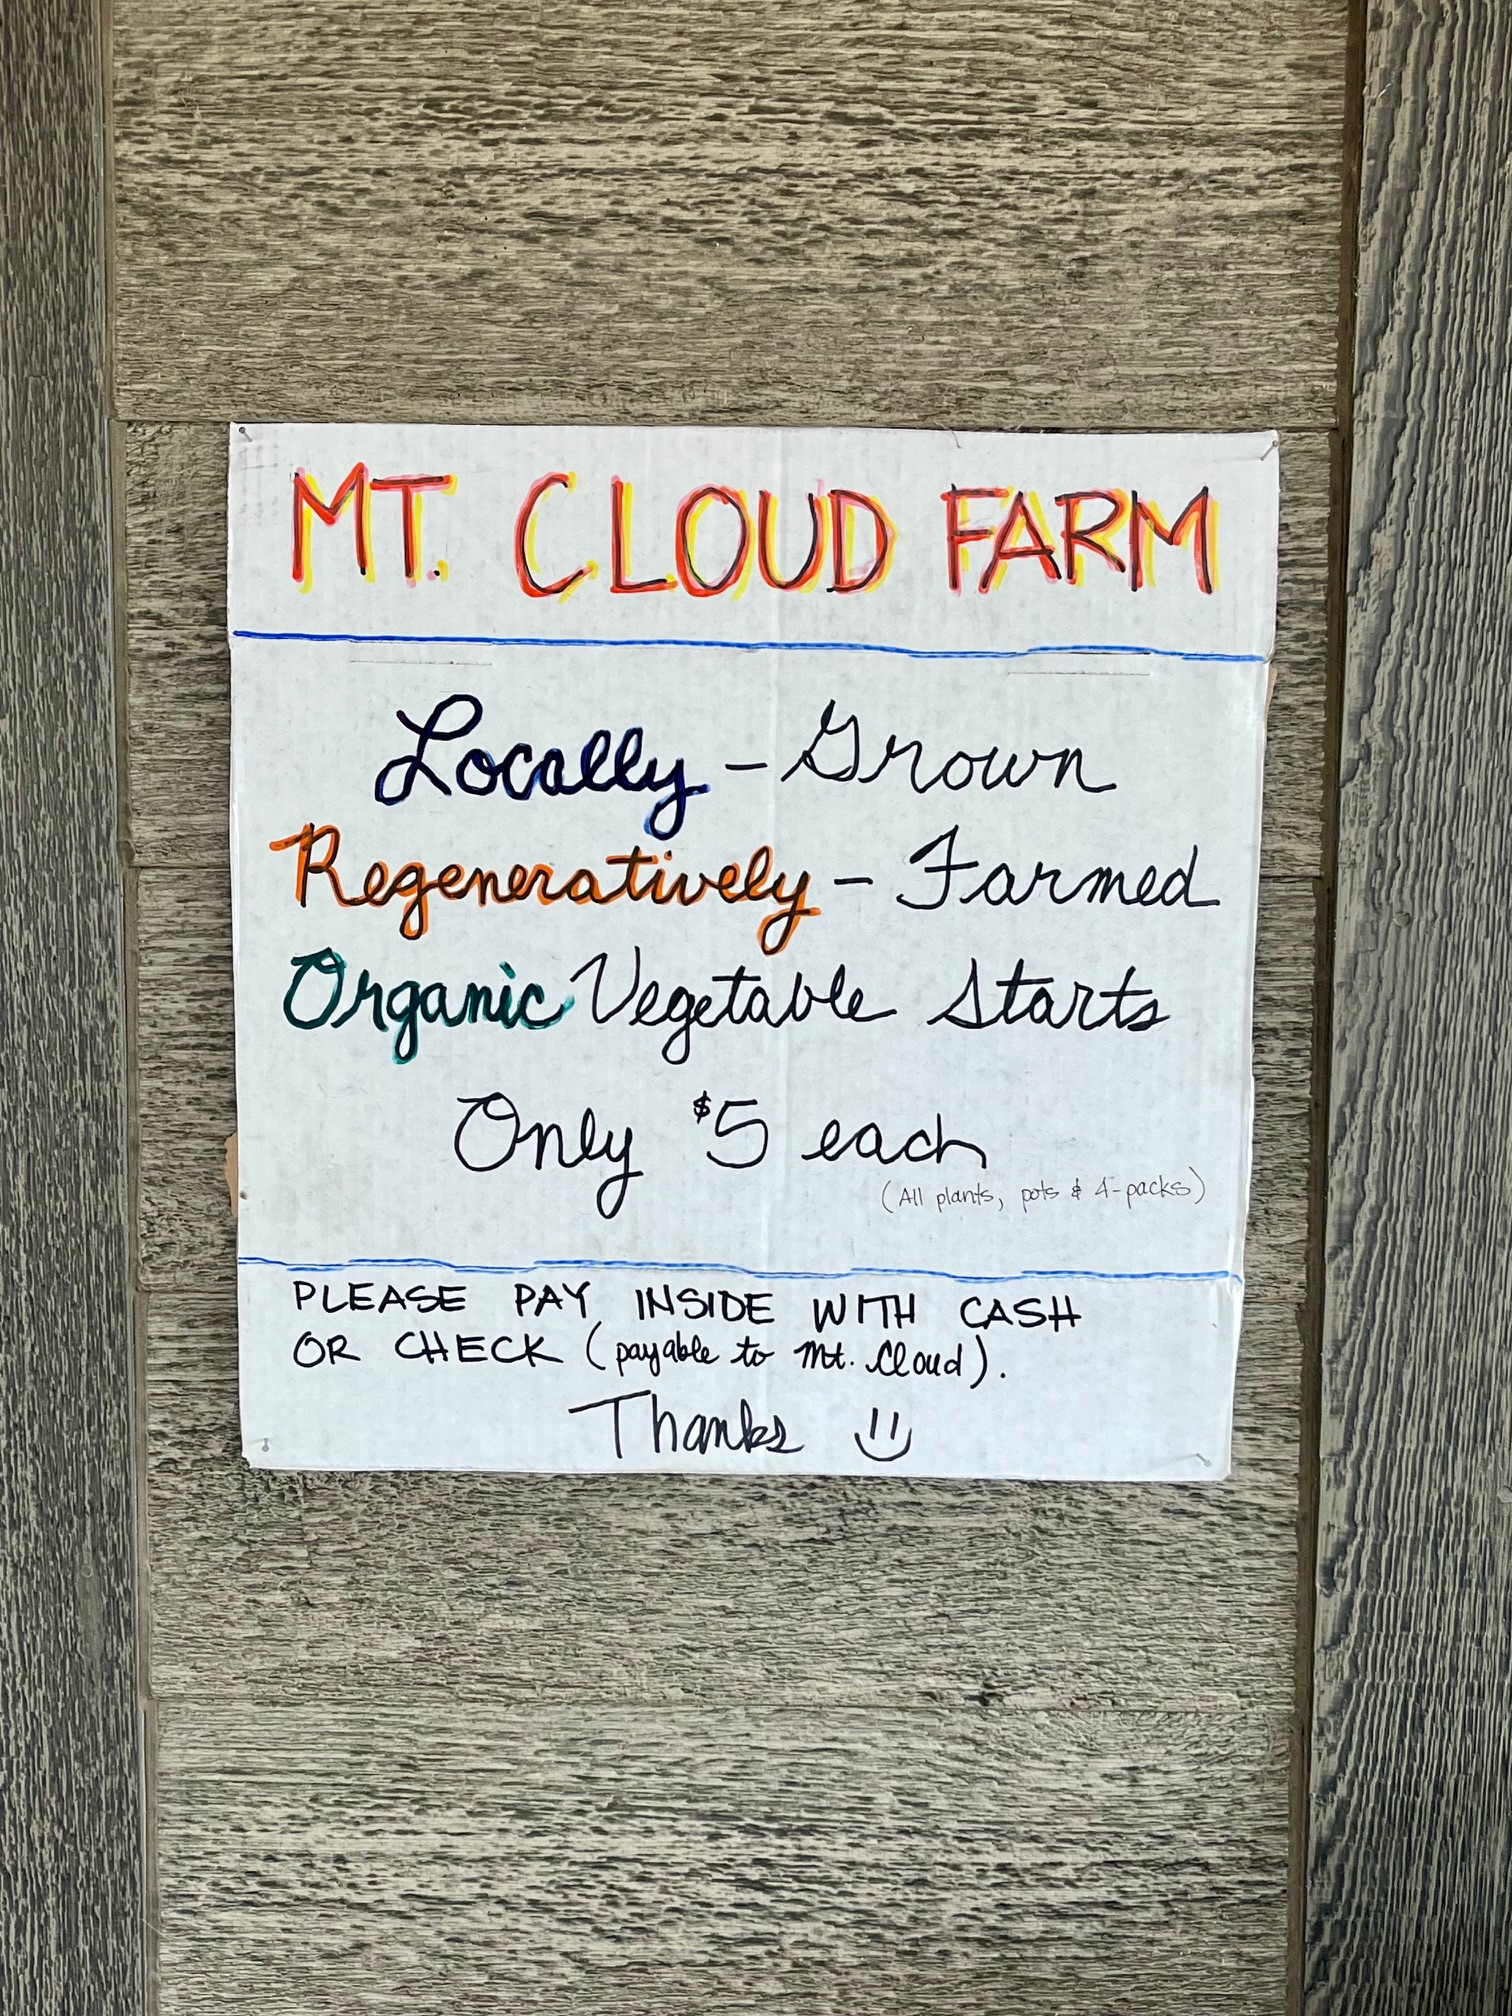 MT. CLOUD FARM
Locally - Grown
Regeneratively - Farmed
Organic Vegetable Starts
Only $5 each
(All plants, pots & 4-packs)
PLEASE PAY INSIDE WITH CASH
OR CHECK (payable to Mt. Cloud).
Thanks